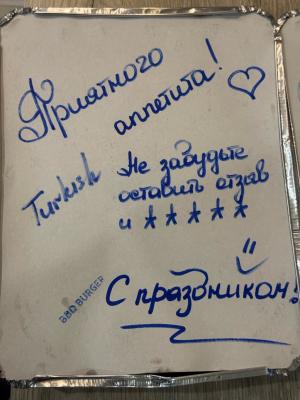 Приятного
аппетита!
Turkish
Не забудьте
оставить отзыв
и ★★★★★
BBQ BURGER
С праздником!